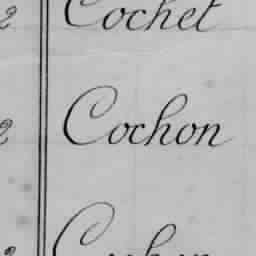 2 Cochet
2 Cochon
2